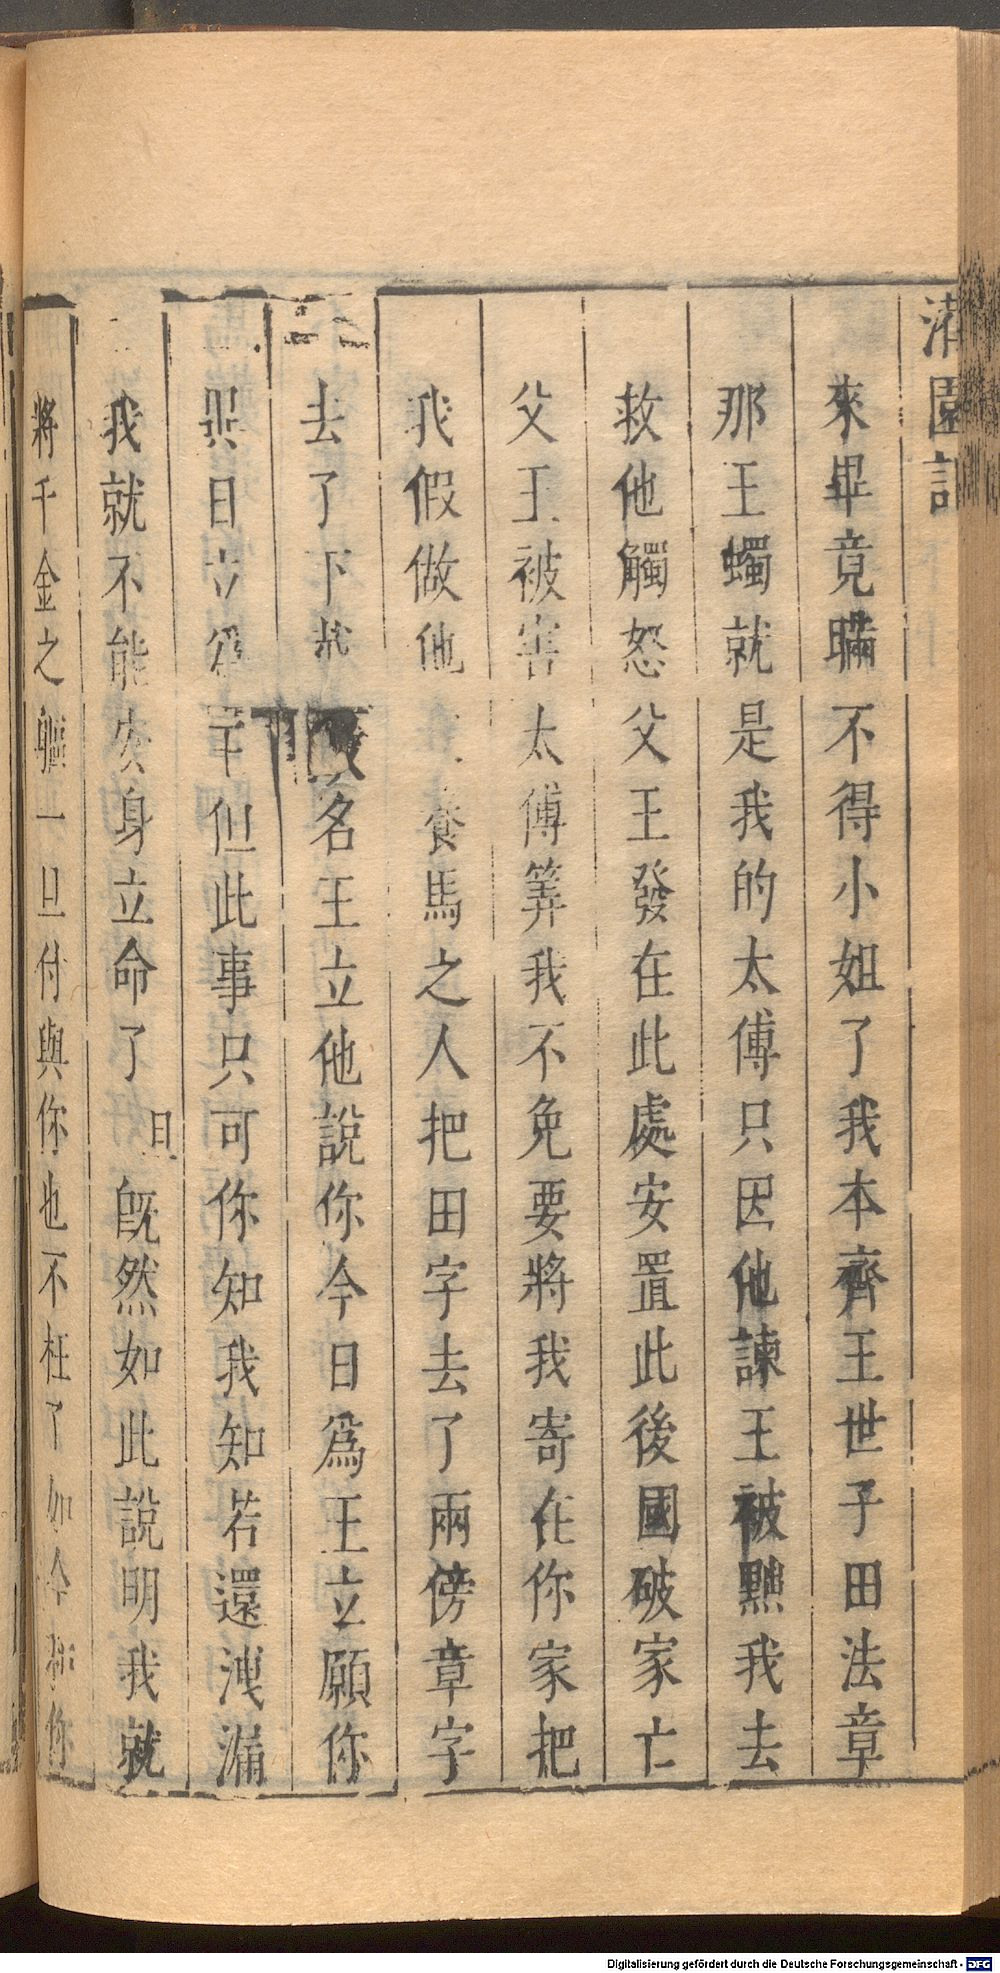 園記
來畢竟瞞不得小姐了我本齊王世子田法章
那王蠋就是我的太傅只因他諫王被黜我去
救他觸怒父王發在此處安置此後國破家亡
父王被害太傅筭我不免要將我寄在你家把
我假做他養馬之人把田字去了兩傍章字
去了下名王立他說你今日爲王立願你
異日立爲但此事只可你知我知若還洩漏
我就不能安身立命了旦旣然如此說明我就
將千金之軀一旦付與你也不枉了如今你
Digitalisierung gefördert durch die Deutsche Forschungsgemeinschaft - DFG